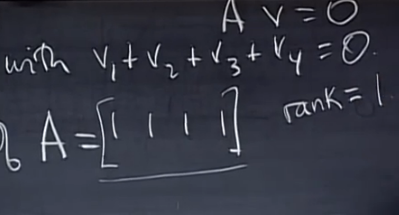 A v = 0
with v₁ + v₂ + v₃ + v₄ = 0.
A = [1 1 1 1] rank = 1.